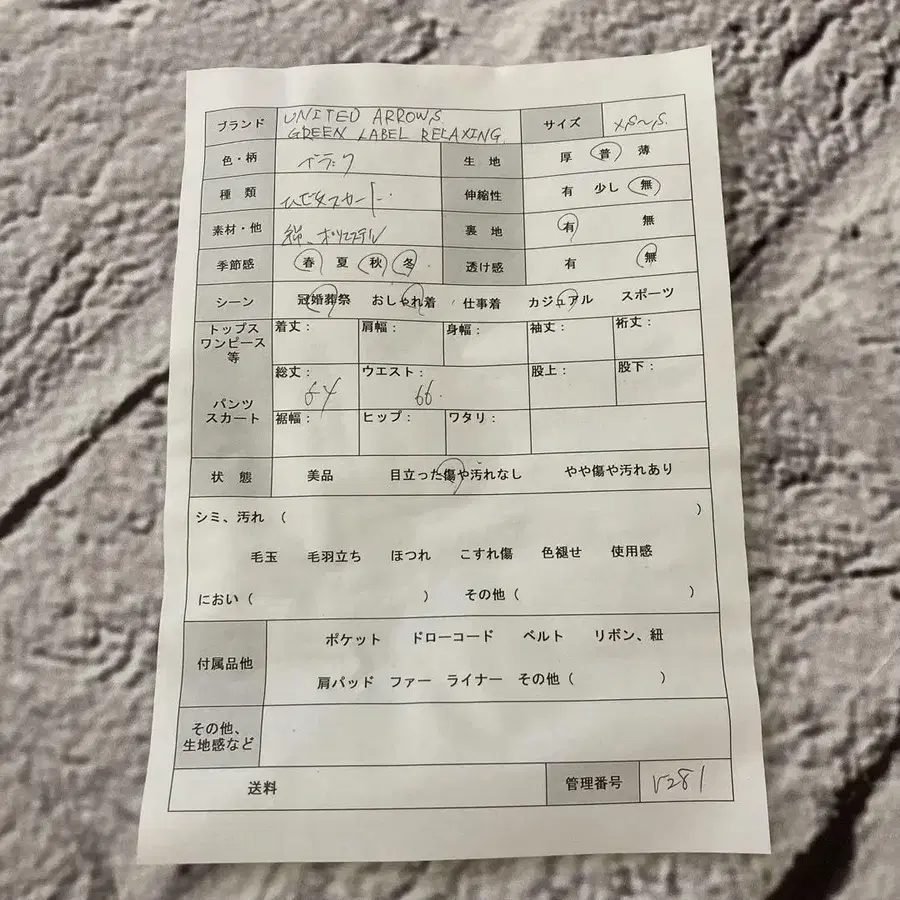 ブランド UNITED ARROWS. GREEN LABEL RELAXING. サイズ XS~S.
色・柄 ブラック 生地 厚 普 薄
種類 ひざ丈スカート 伸縮性 有 少し 無
素材・他 綿、ポリエステル 裏地 有 無
季節感 春 夏 秋 冬 透け感 有 無
シーン 冠婚葬祭 おしゃれ着 仕事着 カジュアル スポーツ
トップス ワンピース 等 着丈: 肩幅: 身幅: 袖丈: 裄丈:
パンツ スカート 総丈: 64 ウエスト: 66. 股上: 股下:
裾幅: ヒップ: ワタリ:
状態 美品 目立った傷や汚れなし やや傷や汚れあり
シミ、汚れ ( )
毛玉 毛羽立ち ほつれ こすれ傷 色褪せ 使用感
におい ( ) その他 ( )
付属品他 ポケット ドローコード ベルト リボン、紐
肩パッド ファー ライナー その他 ( )
その他、 生地感など
送料 管理番号 V281